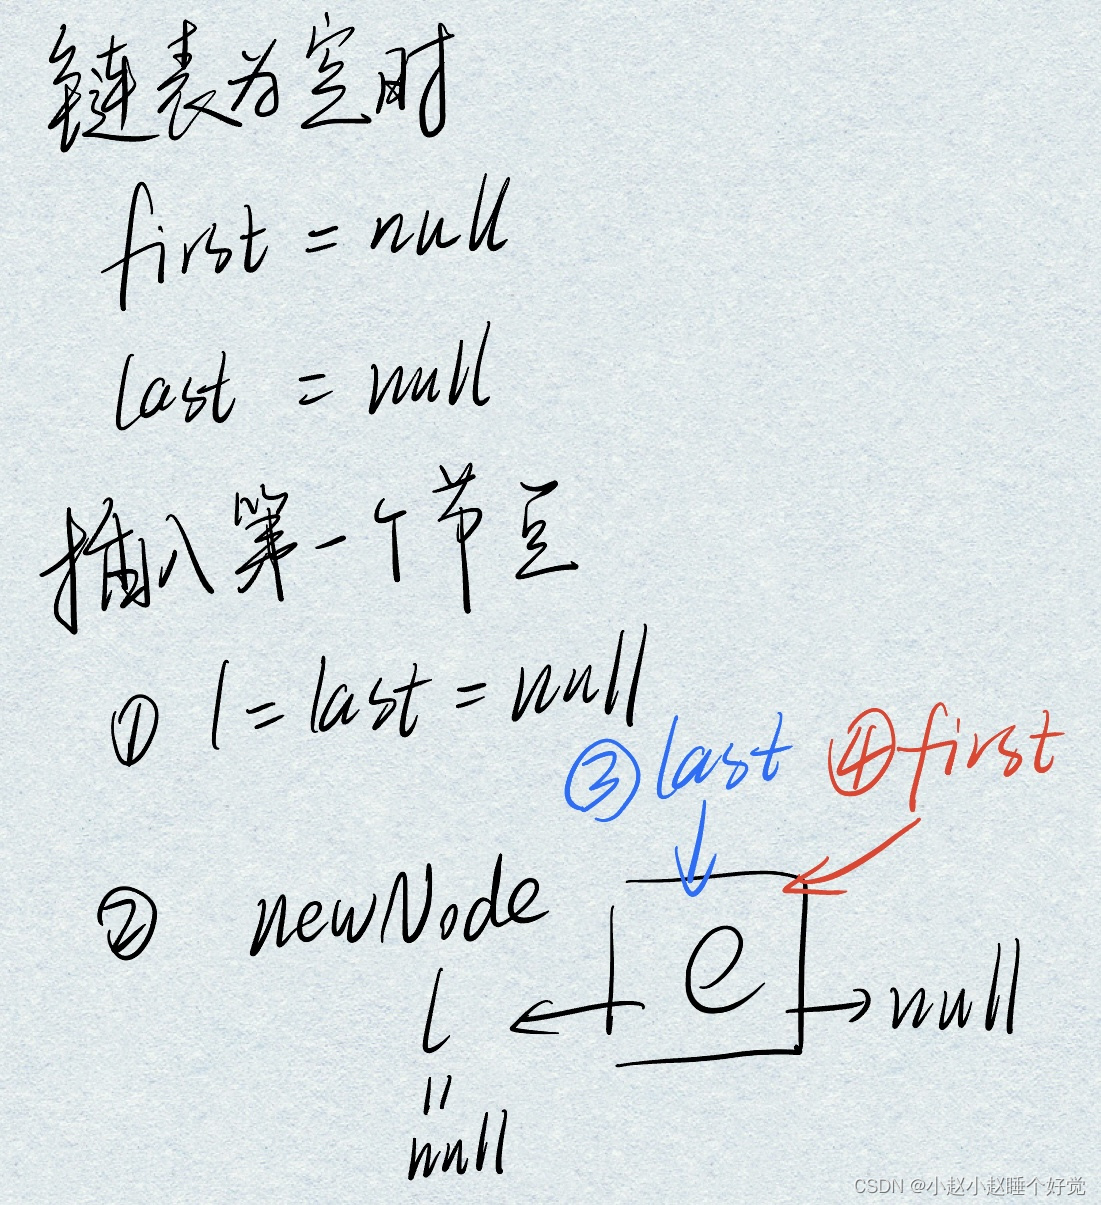 链表为空时
first = null
last = null
插入第一个节点
① l = last = null
③ last ④ first
② newNode e
l null
=
null
CSDN @小赵小赵睡个好觉